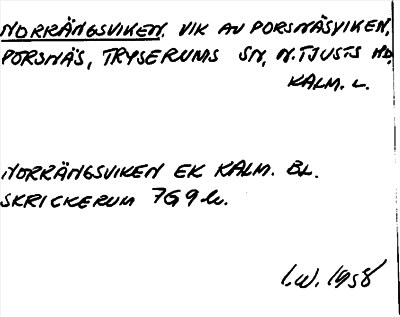 NORRÄNGSVIKEN, VIK AV PORSNÄSVIKEN,
PORSNÄS, TRYSERUMS SN, N. TJUSTS HD,
KALM. L.
NORRÄNGSVIKEN EK KALM. BL.
SKRICKERUM 7G9h.
I.W. 1958